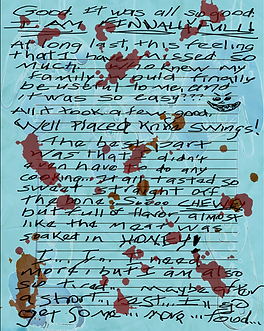 Good It was all so good
I AM FINNALLY FULL!!
At long last, this feeling
that I have missed so
much. Who knew my
family would finally
be useful to me, and
it was so easy????
All it took a few good,
Well Placed Knife Swings!
The best part
was that I didn't
even have to do any
cooking... it all tasted so
sweet straight off
the bone. Soooo CHEWY
but full of flavor, almost
like the meat was
soaked in HONEY!
I... I... need
more, but I am also
so tired... maybe after
a short... rest... I'll go
get some... more... food...